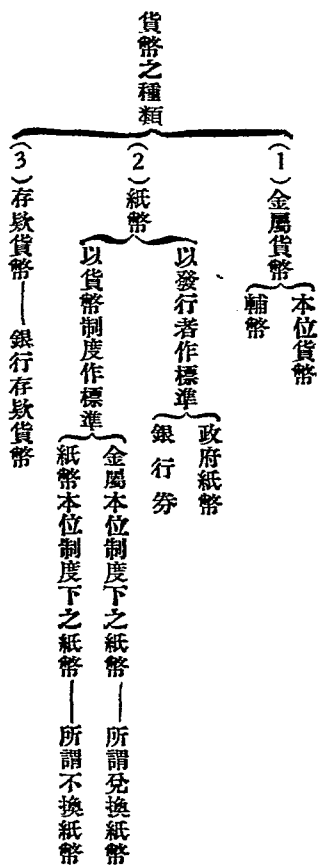 貨幣之種類
（1）金屬貨幣
本位貨幣
輔幣
（2）紙幣
以發行者作標準
政府紙幣
銀行券
以貨幣制度作標準
金屬本位制度下之紙幣——所謂兌換紙幣
紙幣本位制度下之紙幣——所謂不換紙幣
（3）存欵貨幣——銀行存欵貨幣